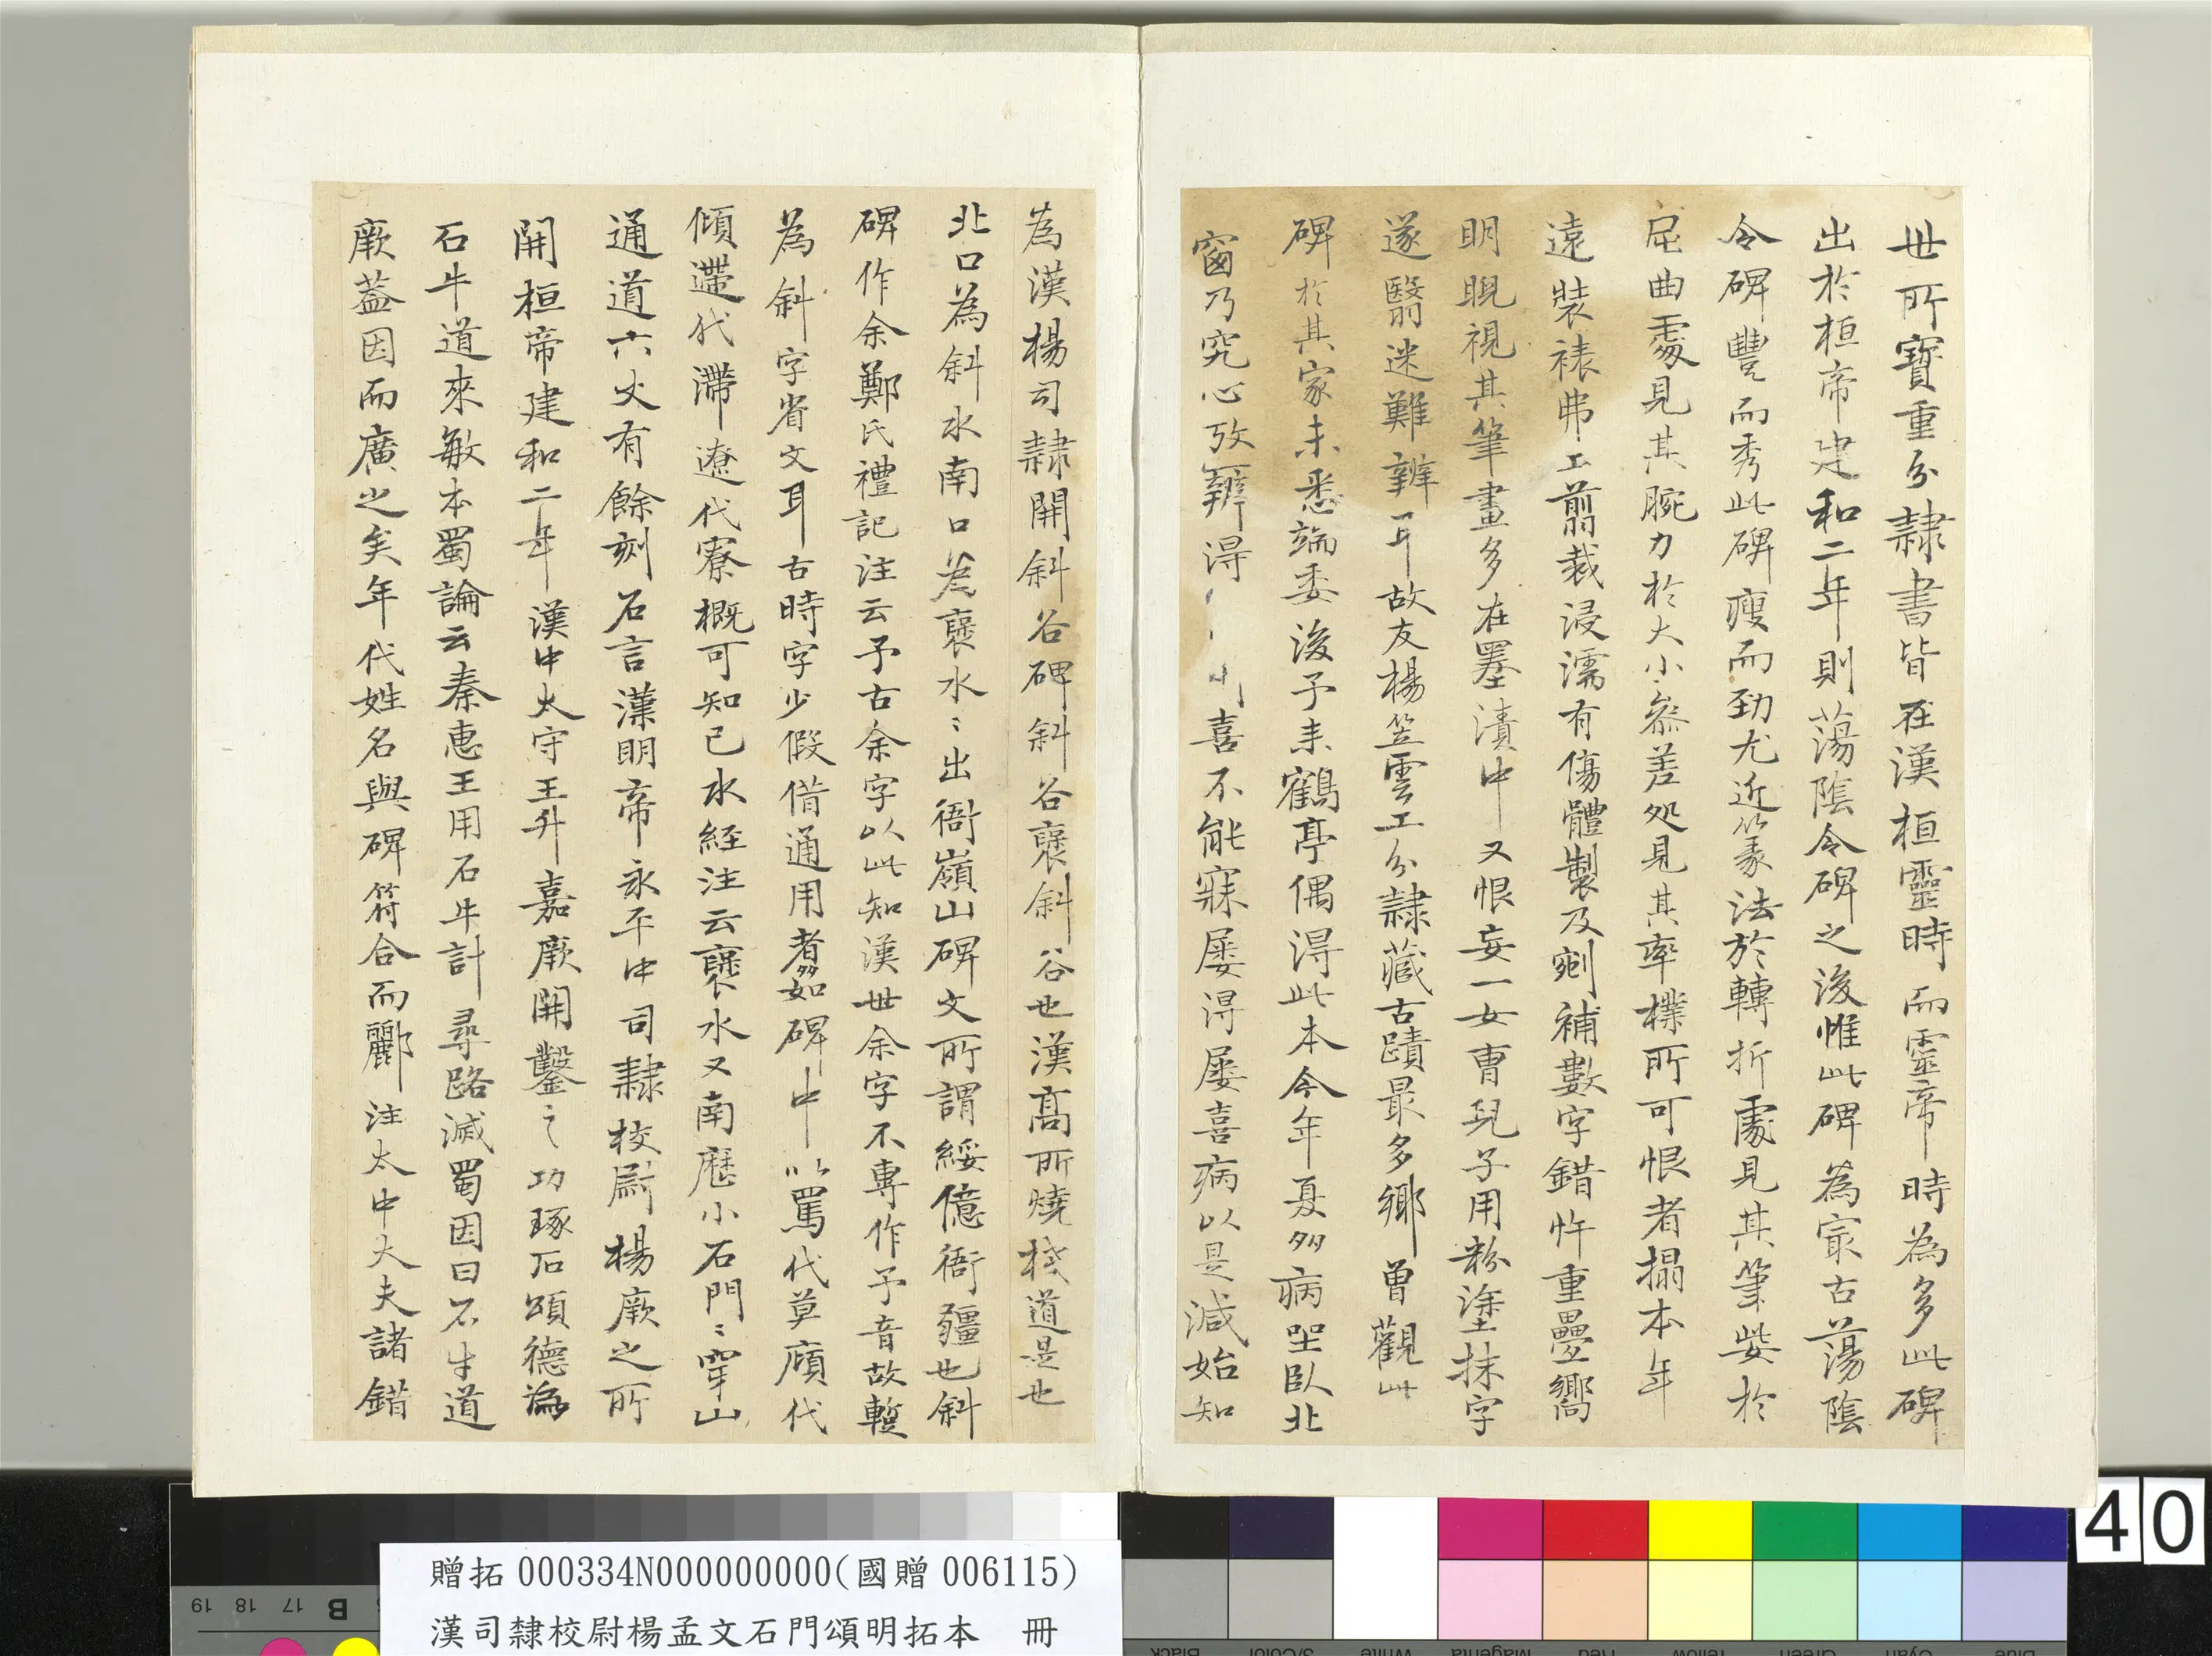 世所寶重分隸書皆在漢桓靈時而靈帝時為多此碑
出於桓帝建和二年則蕩陰令碑之後惟此碑為冣古蕩陰
令碑豐而秀此碑瘦而勁尤近篆法於轉折處見其筆㧘於
屈曲處見其腕力於大小叅差処見其率樸所可恨者搨本年
遠裝裱弗工翦裁浸濡有傷體製及剜補數字錯忤重疊嚮
明睨視其筆畫多在墨漬中又恨妄一女曹兒子用粉塗抹字
遂翳迷難辨耳故友楊笠雲工分隸藏古蹟最多鄉曾觀此
碑於其家未悉端委後予来鶴亭偶淂此本今年夏多病坐臥北
窗乃究心攷辨淂喜不能寐屡淂屡喜病以是減始知
為漢楊司隸開斜谷碑斜谷襃斜谷也漢髙所燒棧道是也
北口為斜水南口為襃水〻出衙嶺山碑文所謂綏億衙疆也斜
碑作余鄭氏禮記注云予古余字以此知漢世余字不專作予音故蹔
為斜字省文耳古時字少假借通用者多如碑中以罵代莫頎代
傾遰代滯遼代寮概可知已水経注云襃水又南歷小石門〻穿山
通道六丈有餘刻石言漢明帝永平中司隸校尉楊厥之所
開桓帝建和二年漢中太守王升嘉厥開鑿之功琢石頌德為
石牛道來敏本蜀論云秦惠王用石牛計尋路滅蜀因曰石牛道
厥葢因而廣之矣年代姓名與碑符合而酈注太中大夫諸錯
40
贈拓 000334N000000000(國贈 006115)
漢司隸校尉楊孟文石門頌明拓本 冊
19 18 17 B
Black 3/Color White Magenta Red Yellow Green Cyan Blue